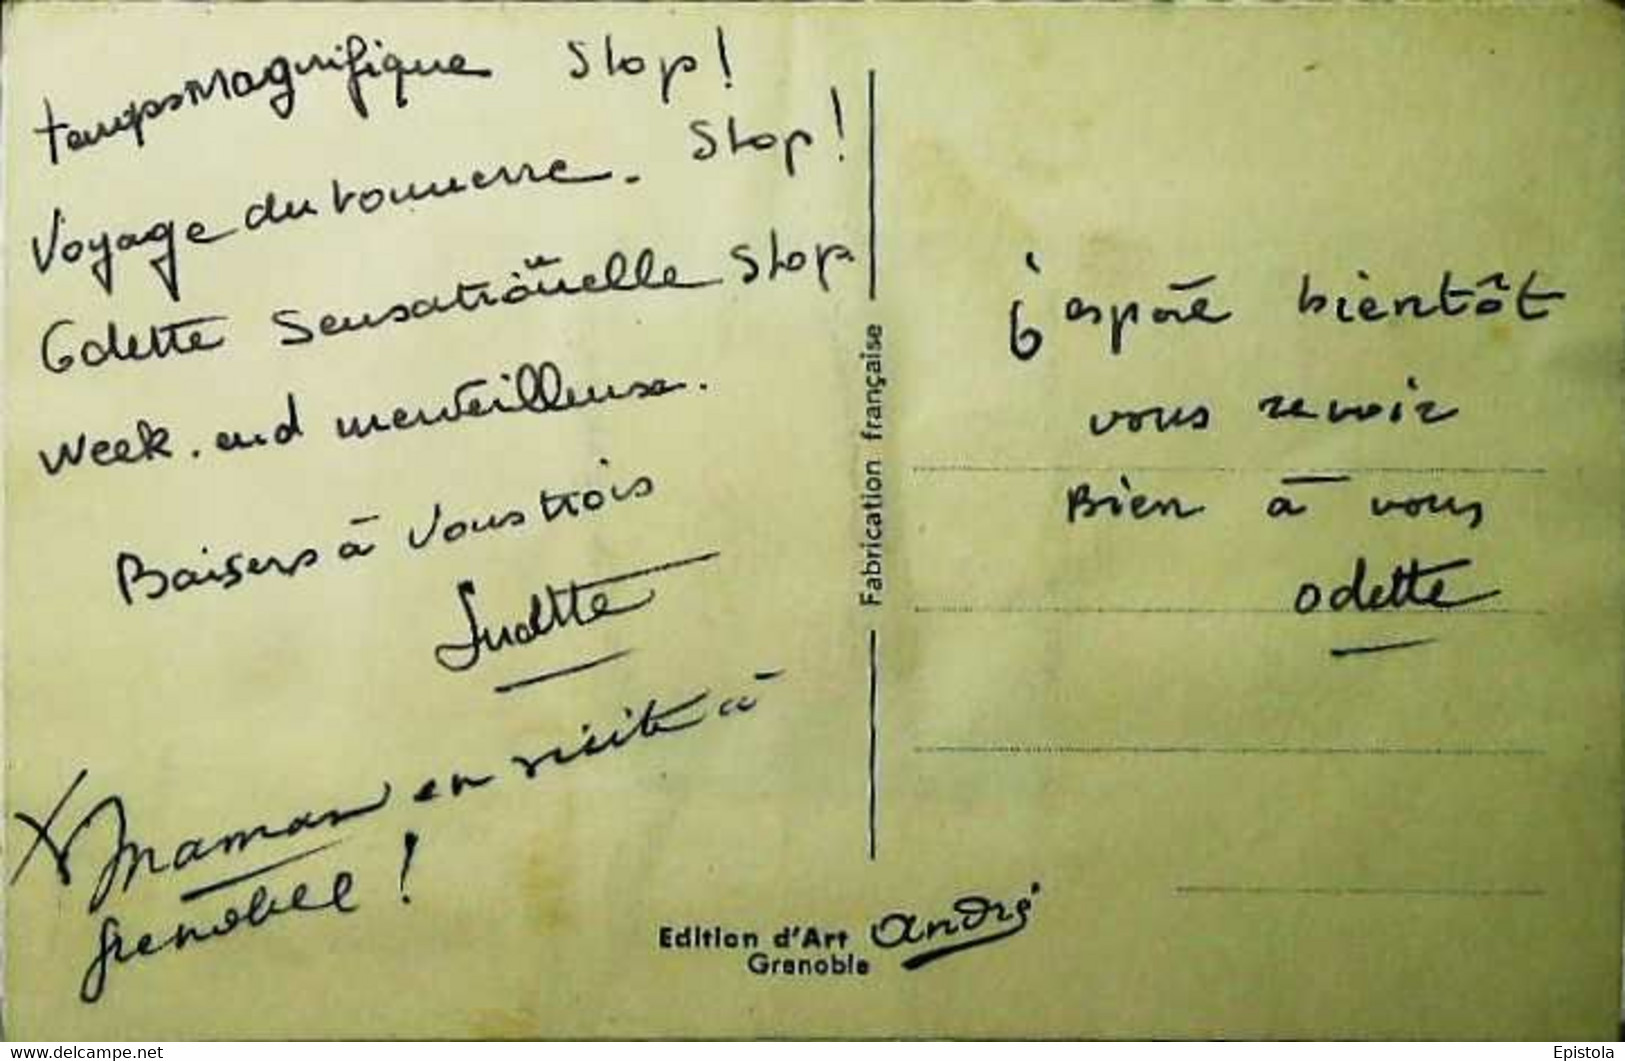 temps magnifique Stop!
Voyage du tonnerre. Stop!
Odette sensationnelle Stop.
Week.end merveilleuse.
Baisers à Vous trois
X Maman en visite à
Grenoble !
j'espère bientôt
vous revoir
Bien à vous
odette
Fabrication française
Edition d'Art André
Grenoble
delcampe.net
Epistola